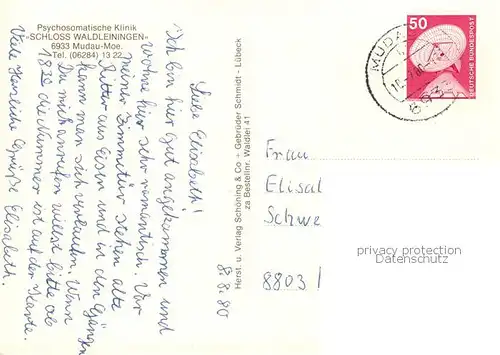 Psychosomatische Klinik
»SCHLOSS WALDLEININGEN«
6933 Mudau-Moe.
Tel. (06284) 13 22
Liebe Elisabeth!
Ich bin hier gut angekommen und
wohne hier sehr romantisch. Vor
meiner Zimmertür stehen alte
Ritter aus Eisen und in den Gängen
kann man sich verlaufen. Wenn
Du mich anrufen willst bitte ab
18 30 die Nummer ist auf der Karte.
Viele Herzliche Grüße Elisabeth.
8.8.80
Herst. u. Verlag Schöning & Co + Gebrüder Schmidt · Lübeck
za Bestellnr. Waldler 41
50
DEUTSCHE BUNDESPOST
MUDAU
693
Frau
Elisal
Schwe
8803
privacy protection
Datenschutz